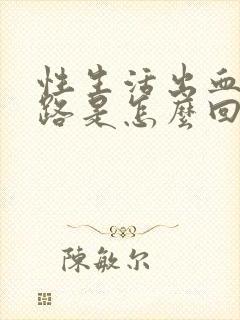 性生活出血
路是怎麼回
陳敏尔